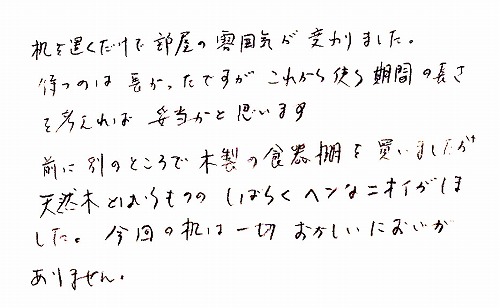 机を置くだけで部屋の雰囲気が変わりました。
待つのは長かったですが これから使う期間の長さ
を考えれば 妥当かと思います
前に別のところで木製の食器棚を買いましたが
天然木とはいうものの しばらくヘンなニオイがしま
した。今回の机は一切 おかしいにおいが
ありません。